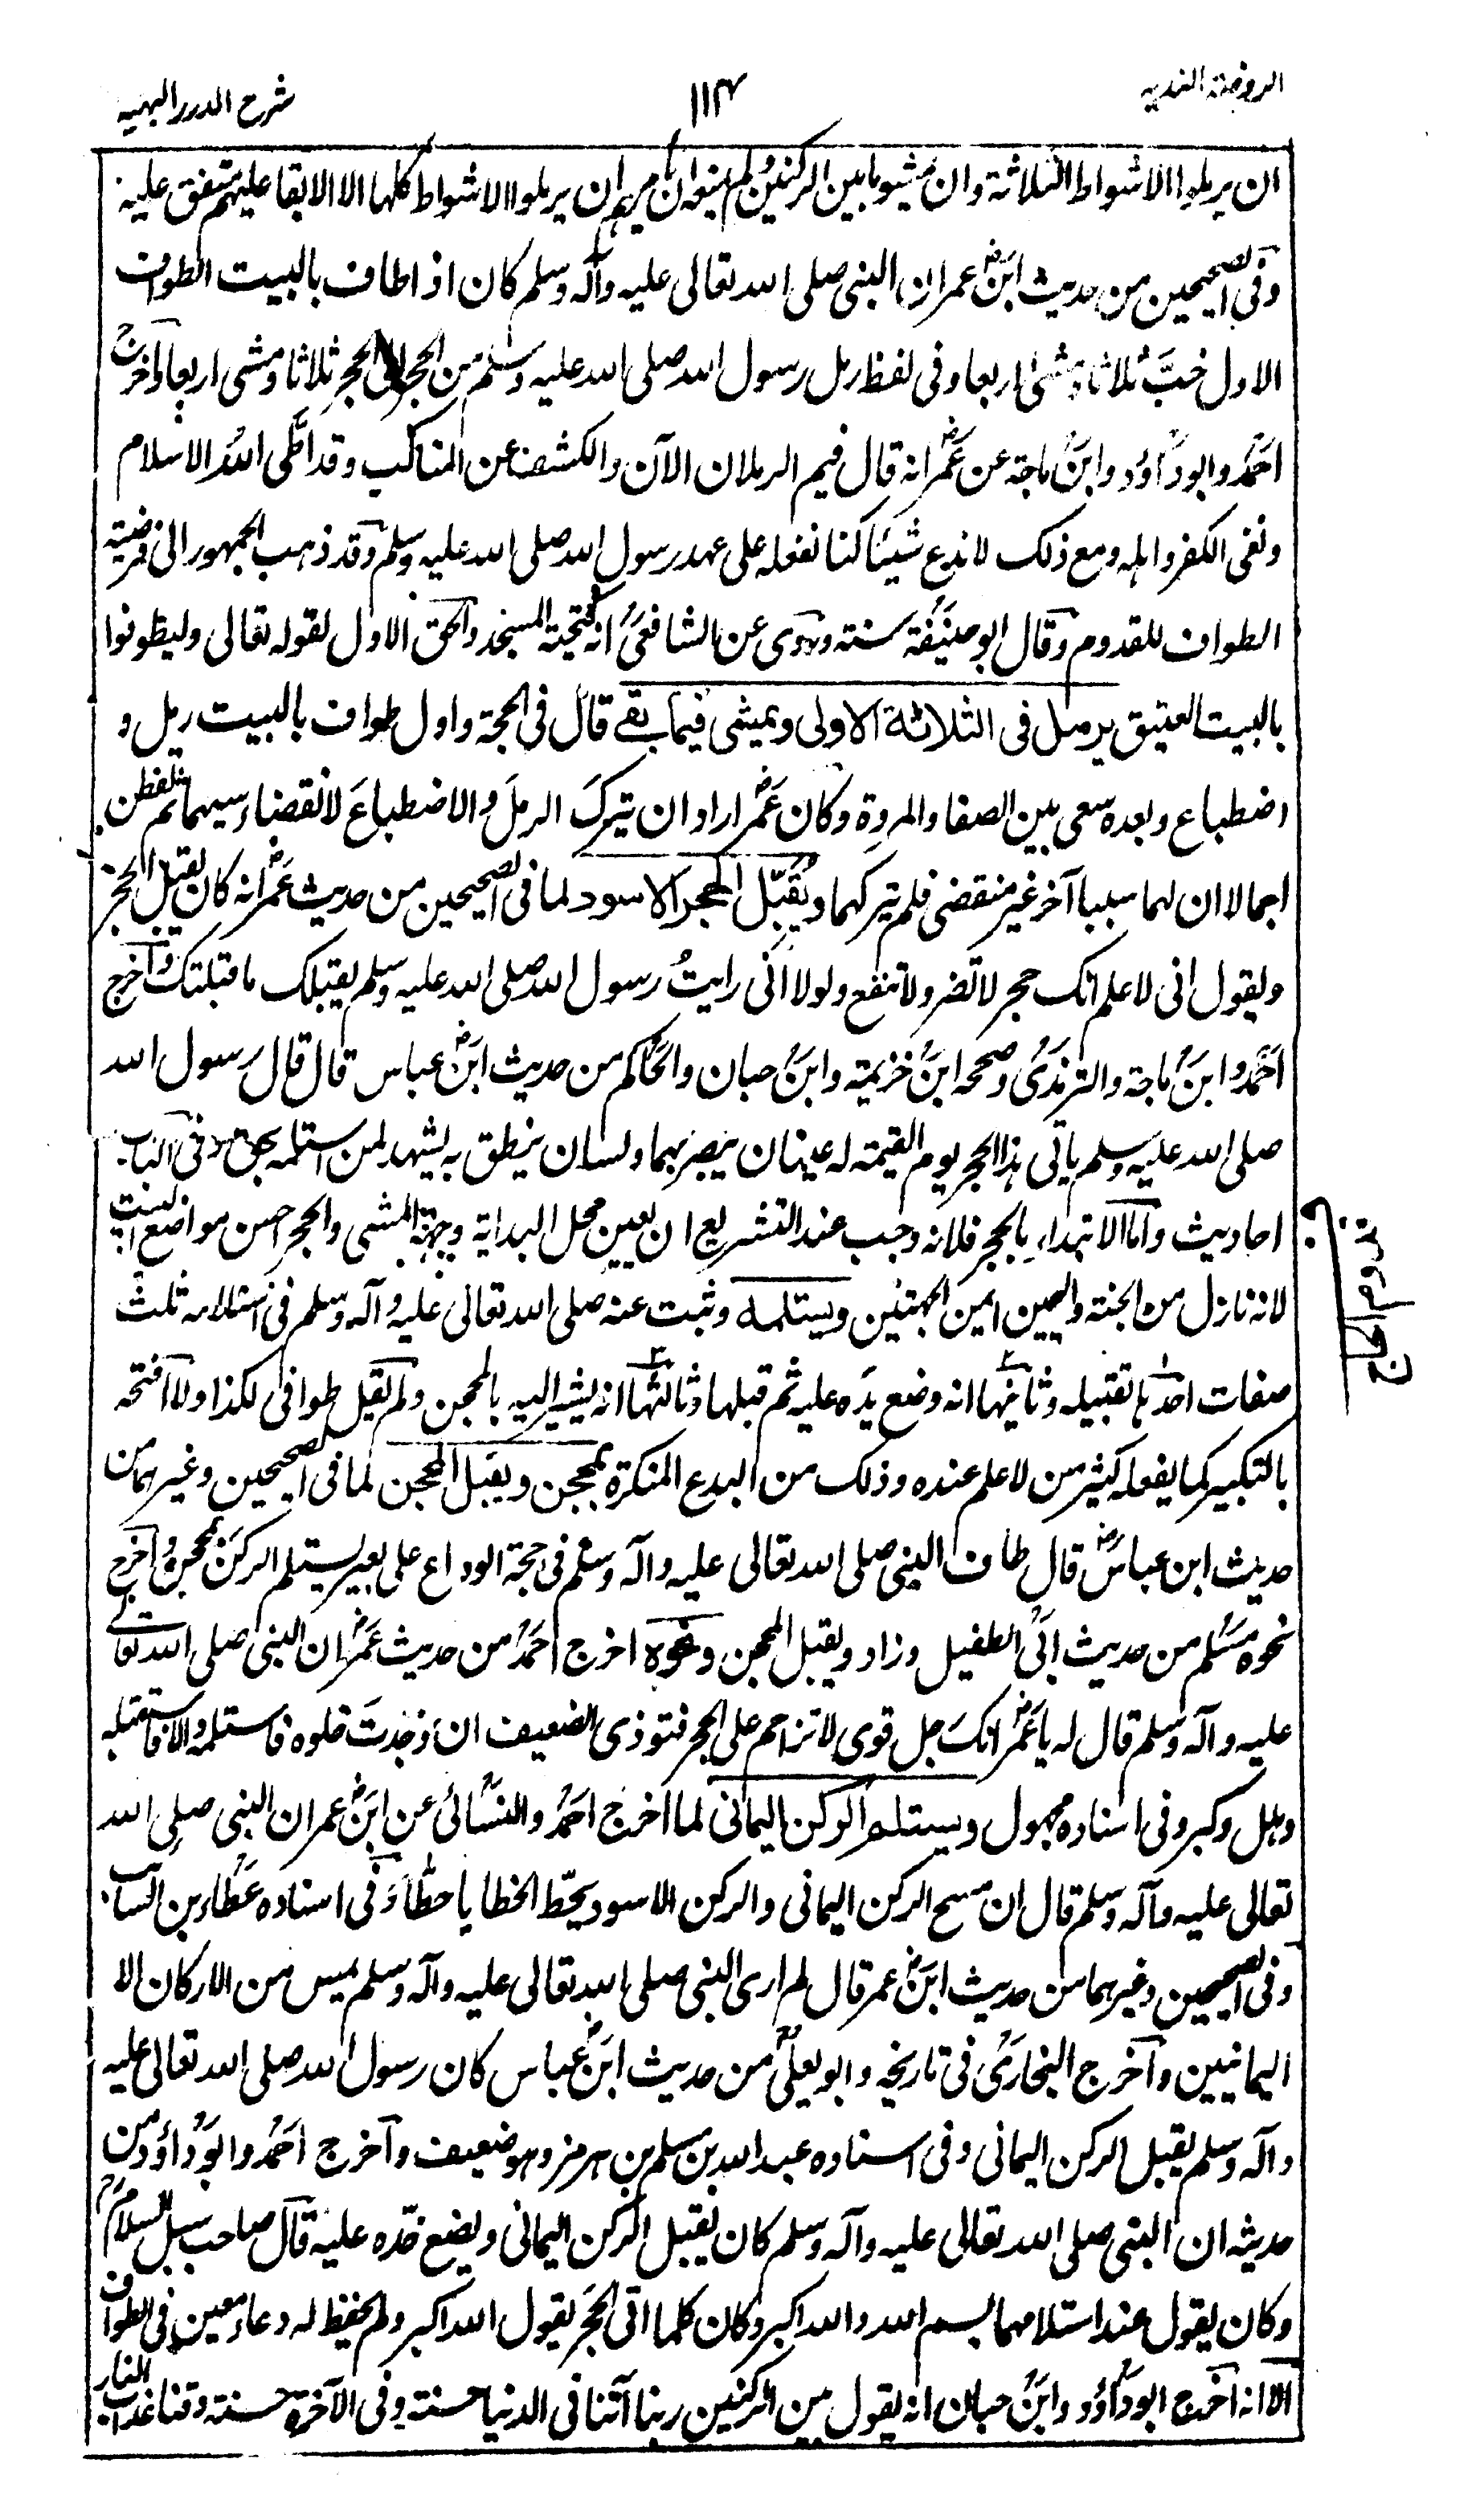 الروضة الندية
١١٣
شرح الدرر البهية
ان يرملوا الاشواط الثلاثة وان مشوا ما بين الركنين ولم يمنعه ان يأمرهم ان يرملوا الاشواط كلها الا الابقا عليهم متفق عليه
وفي الصحيحين من حديث ابن عمر ان النبي صلى الله تعالى عليه وآله وسلم كان اذا طاف بالبيت الطواف
الاول خبّ ثلاثا ومشى اربعا وفي لفظ رمل رسول الله صلى الله عليه وسلم من الحجر الى الحجر ثلاثا ومشى اربعا وأخرج
احمد وابوداؤد وابن ماجة عن عمر انه قال فيم الرملان الآن والكشف عن المناكب وقد اطّى الله الاسلام
ونفى الكفر واهله ومع ذلك لا ندع شيئا كنا نفعله على عهد رسول الله صلى الله عليه وسلم وقد ذهب الجمهور الى فرضية
الطواف للقدوم وقال ابو حنيفة سنة وروى عن الشافعي انه كتحية المسجد والحق الاول لقوله تعالى وليطوفوا
بالبيت العتيق يرمل في الثلاثة الاولى ويمشي فيما بقي قال في الحجة واول طواف بالبيت رمل و
اضطباع وبعده سعى بين الصفا والمروة وكان عمر اراد ان يترك الرمل والاضطباع لانقضاء سببهما ثم تفطن
اجمالا ان لهما سببا آخر غير منقضى فلم يتركهما ويُقبّل الحجر الاسود لما في الصحيحين من حديث عمر انه كان يقبل الحجر
ويقول اني لاعلم انك حجر لا تضر ولا تنفع ولولا اني رايتُ رسول الله صلى الله عليه وسلم يقبلك ما قبلتك وأخرج
احمد وابن ماجة والترمذي وصححه ابن خزيمة وابن حبان والحاكم من حديث ابن عباس قال قال رسول الله
صلى الله عليه وسلم يأتي هذا الحجر يوم القيمة له عينان يبصر بهما ولسان ينطق به يشهد لمن استلمه بحق وفي الباب
احاديث واما الابتداء بالحجر فلانه وجب عند التشريع ان يعين محل البداية وجهة المشي والحجر احسن مواضع البيت
لانه نازل من الجنة واليمين ايمن الجهتين ويستلمه وثبت عنه صلى الله تعالى عليه وآله وسلم في استلامه ثلث
صفات احدها تقبيله وثانيها انه وضع يده عليه ثم قبلها وثالثها انه يشير اليه بالمحجن ولم يقل طوافى لكذا ولا افتحه
بالتكبير كما يفعله كثير من لا علم عنده وذلك من البدع المنكرة بمحجن ويقبل المحجن لما في الصحيحين وغيرهما من
حديث ابن عباس قال طاف النبي صلى الله تعالى عليه وآله وسلم في حجة الوداع على بعير يستلم الركن بمحجن وأخرج
نحوه مسلم من حديث ابي الطفيل وزاد ويقبل المحجن ونحوه اخرج احمد من حديث عمر ان النبي صلى الله تعالى
عليه وآله وسلم قال له يا عمر انك رجل قوي لا تزاحم على الحجر فتوذى الضعيف ان وجدت خلوه فاستلمه والا فاستقبله
وهلل وكبر وفي اسناده مجهول ويستلم الركن اليماني لما اخرج احمد والنسائي عن ابن عمر ان النبي صلى الله
تعالى عليه وآله وسلم قال ان مسح الركن اليماني والركن الاسود يحطّ الخطايا حطّا وفي اسناده عطاء بن السائب
وفي الصحيحين وغيرهما من حديث ابن عمر قال لم ارى النبي صلى الله تعالى عليه وآله وسلم يمس من الاركان الا
اليمانيين وأخرج البخاري في تاريخه وابو يعلى من حديث ابن عباس كان رسول الله صلى الله تعالى عليه
وآله وسلم يقبل الركن اليماني وفي اسناده عبد الله بن مسلم بن هرمز وهو ضعيف وأخرج احمد وابوداؤد من
حديثه ان النبي صلى الله تعالى عليه وآله وسلم كان يقبل الركن اليماني ويضع خدّه عليه قال صاحب سبل السلام
وكان يقول عند استلامهما بسم الله والله اكبر وكان كلما اتى الحجر يقول الله اكبر ولم يحفظ له دعاء معين في الطواف
الا انه اخرج ابوداؤد وابن حبان انه يقول بين الركنين ربنا آتنا في الدنيا حسنة وفي الآخرة حسنة وقنا عذاب النار